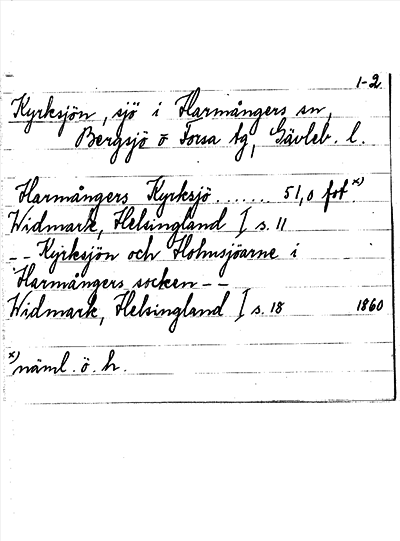 1-2.
Kyrksjön, sjö i Harmångers sn,
Bergsjö o Forsa tg, Gävleb. l.
Harmångers Kyrksjö ....... 51,0 fot x)
Widmark, Helsingland I s. 11
-- Kyrksjön och Holmsjöarne i
Harmångers socken --
Widmark, Helsingland I s. 18 1860
x) näml. ö. h.